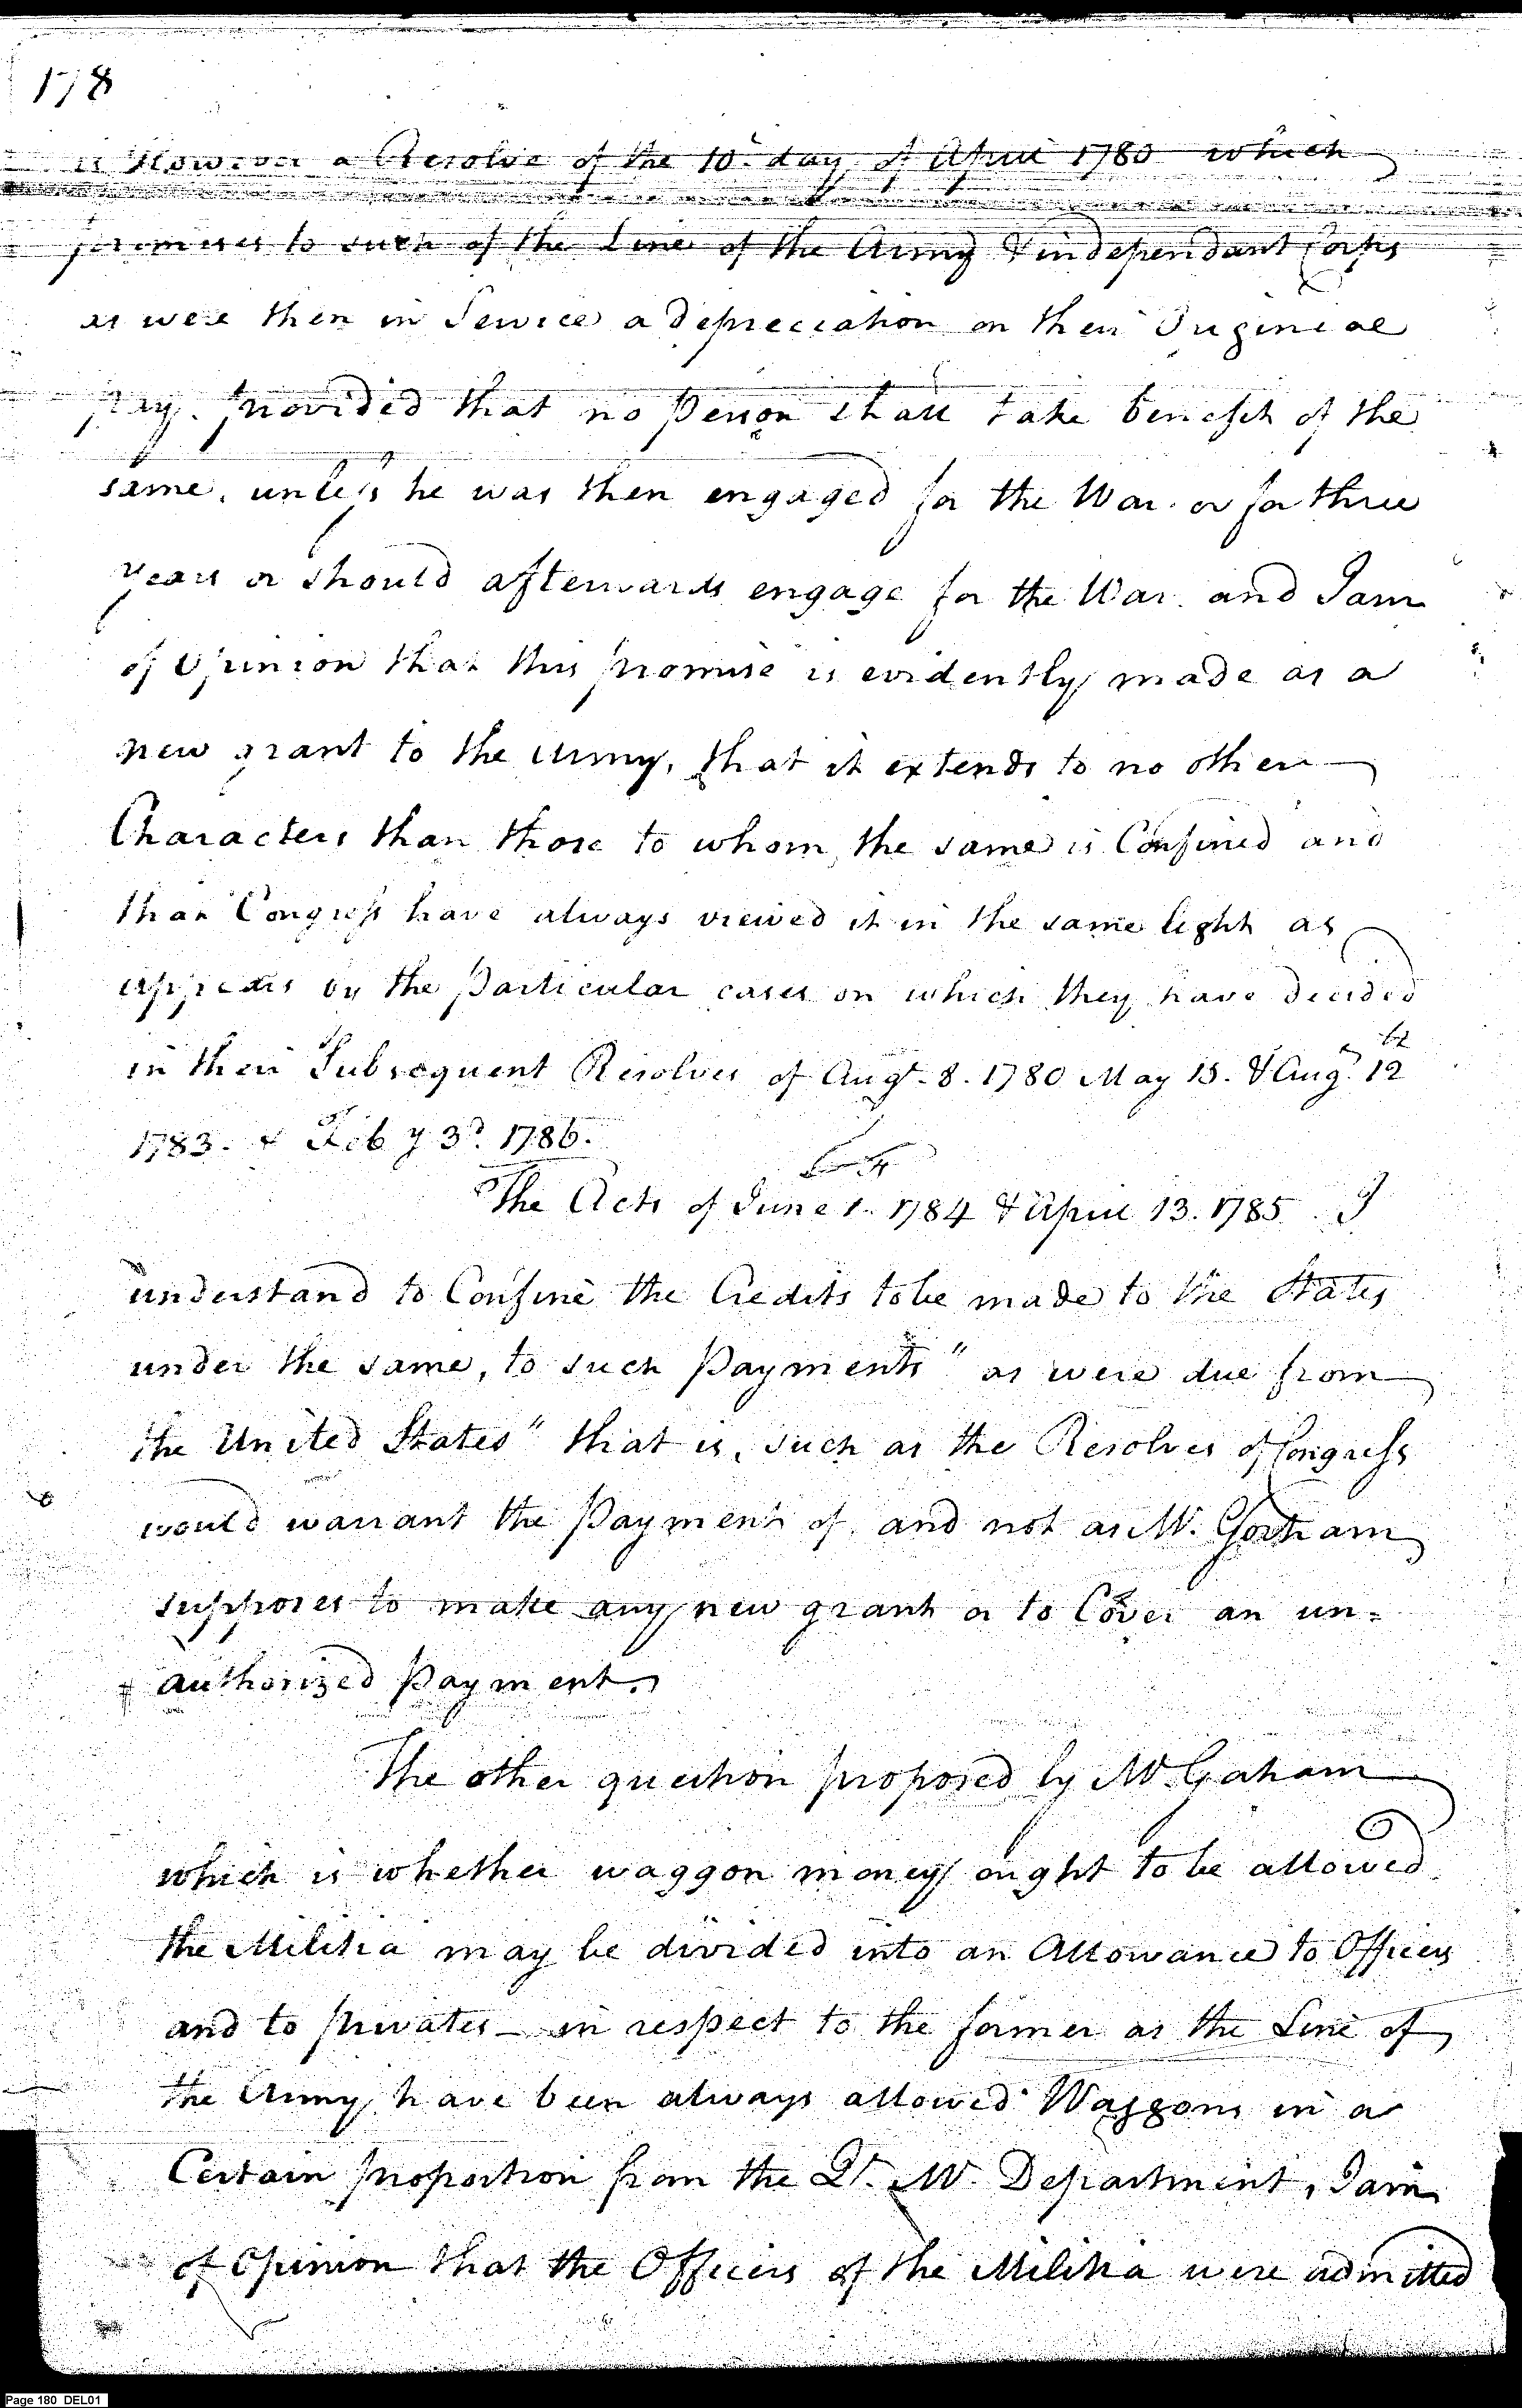 178
is However a Resolve of the 10th day of April 1780 which
promises to such of the Line of the Army & independant Corps
as were then in Service a depreciation on their Originial
pay. provided that no person shall take benefit of the
same, unless he was then engaged for the War. or for three
years or should afterwards engage for the War. and I am
of Opinion that this promise is evidently made as a
new grant to the Army, that it extends to no other
Characters than those to whom the same is Confined and
that Congress have always viewed it in the same light as
appears by the Particular cases on which they have decided
in their Subsequent Resolves of Augt. 8. 1780 May 15. & Augt. 12
1783. & Feby 3d. 1786.
The Acts of June 1. 1784 & April 13. 1785 I
understand to Confine the Credits to be made to the States
under the same, to such Payments " as were due from
the United States " that is, such as the Resolves of Congress
would warrant the Payment of and not as Mr. Gorham
supposes to make any new grant or to Cover an un=
authorized Payment.
The other question proposed by Mr Graham
which is whether waggon money ought to be allowed
the Militia may be divided into an Allowance to Officers
and to privates - in respect to the former as the Line of
the Army have been always allowed Waggons in a
Certain proportion from the Qr. Mr. Department, I am
of Opinion that the Officers of the Militia were admitted
Page 180 DEL01